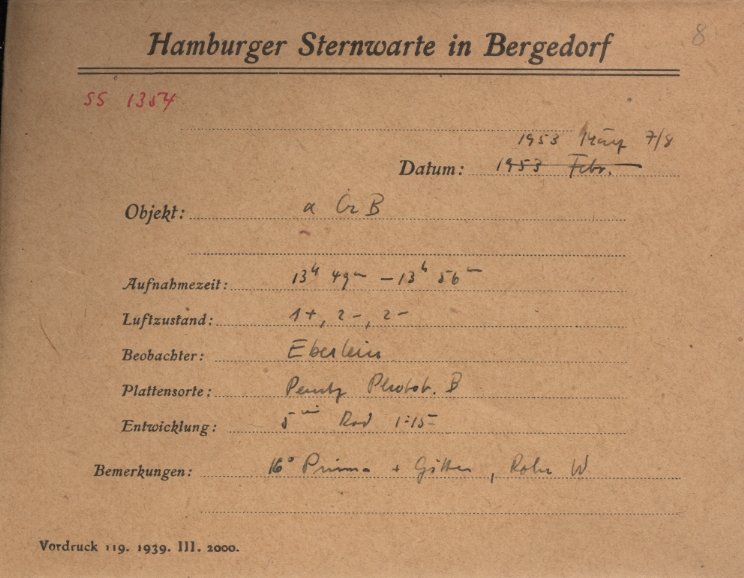 Hamburger Sternwarte in Bergedorf
8
SS 1354
1953 März 7/8
Datum: 1953 Febr.
Objekt: α Cr B
Aufnahmezeit: 13h 49m – 13h 56m
Luftzustand: 1+, 2-, 2-
Beobachter: Eberlein
Plattensorte: Perutz Photot. B
Entwicklung: 5min Rod 1:15
Bemerkungen: 16° Prisma + Gitter, Rohr W
Vordruck 119. 1939. III. 2000.